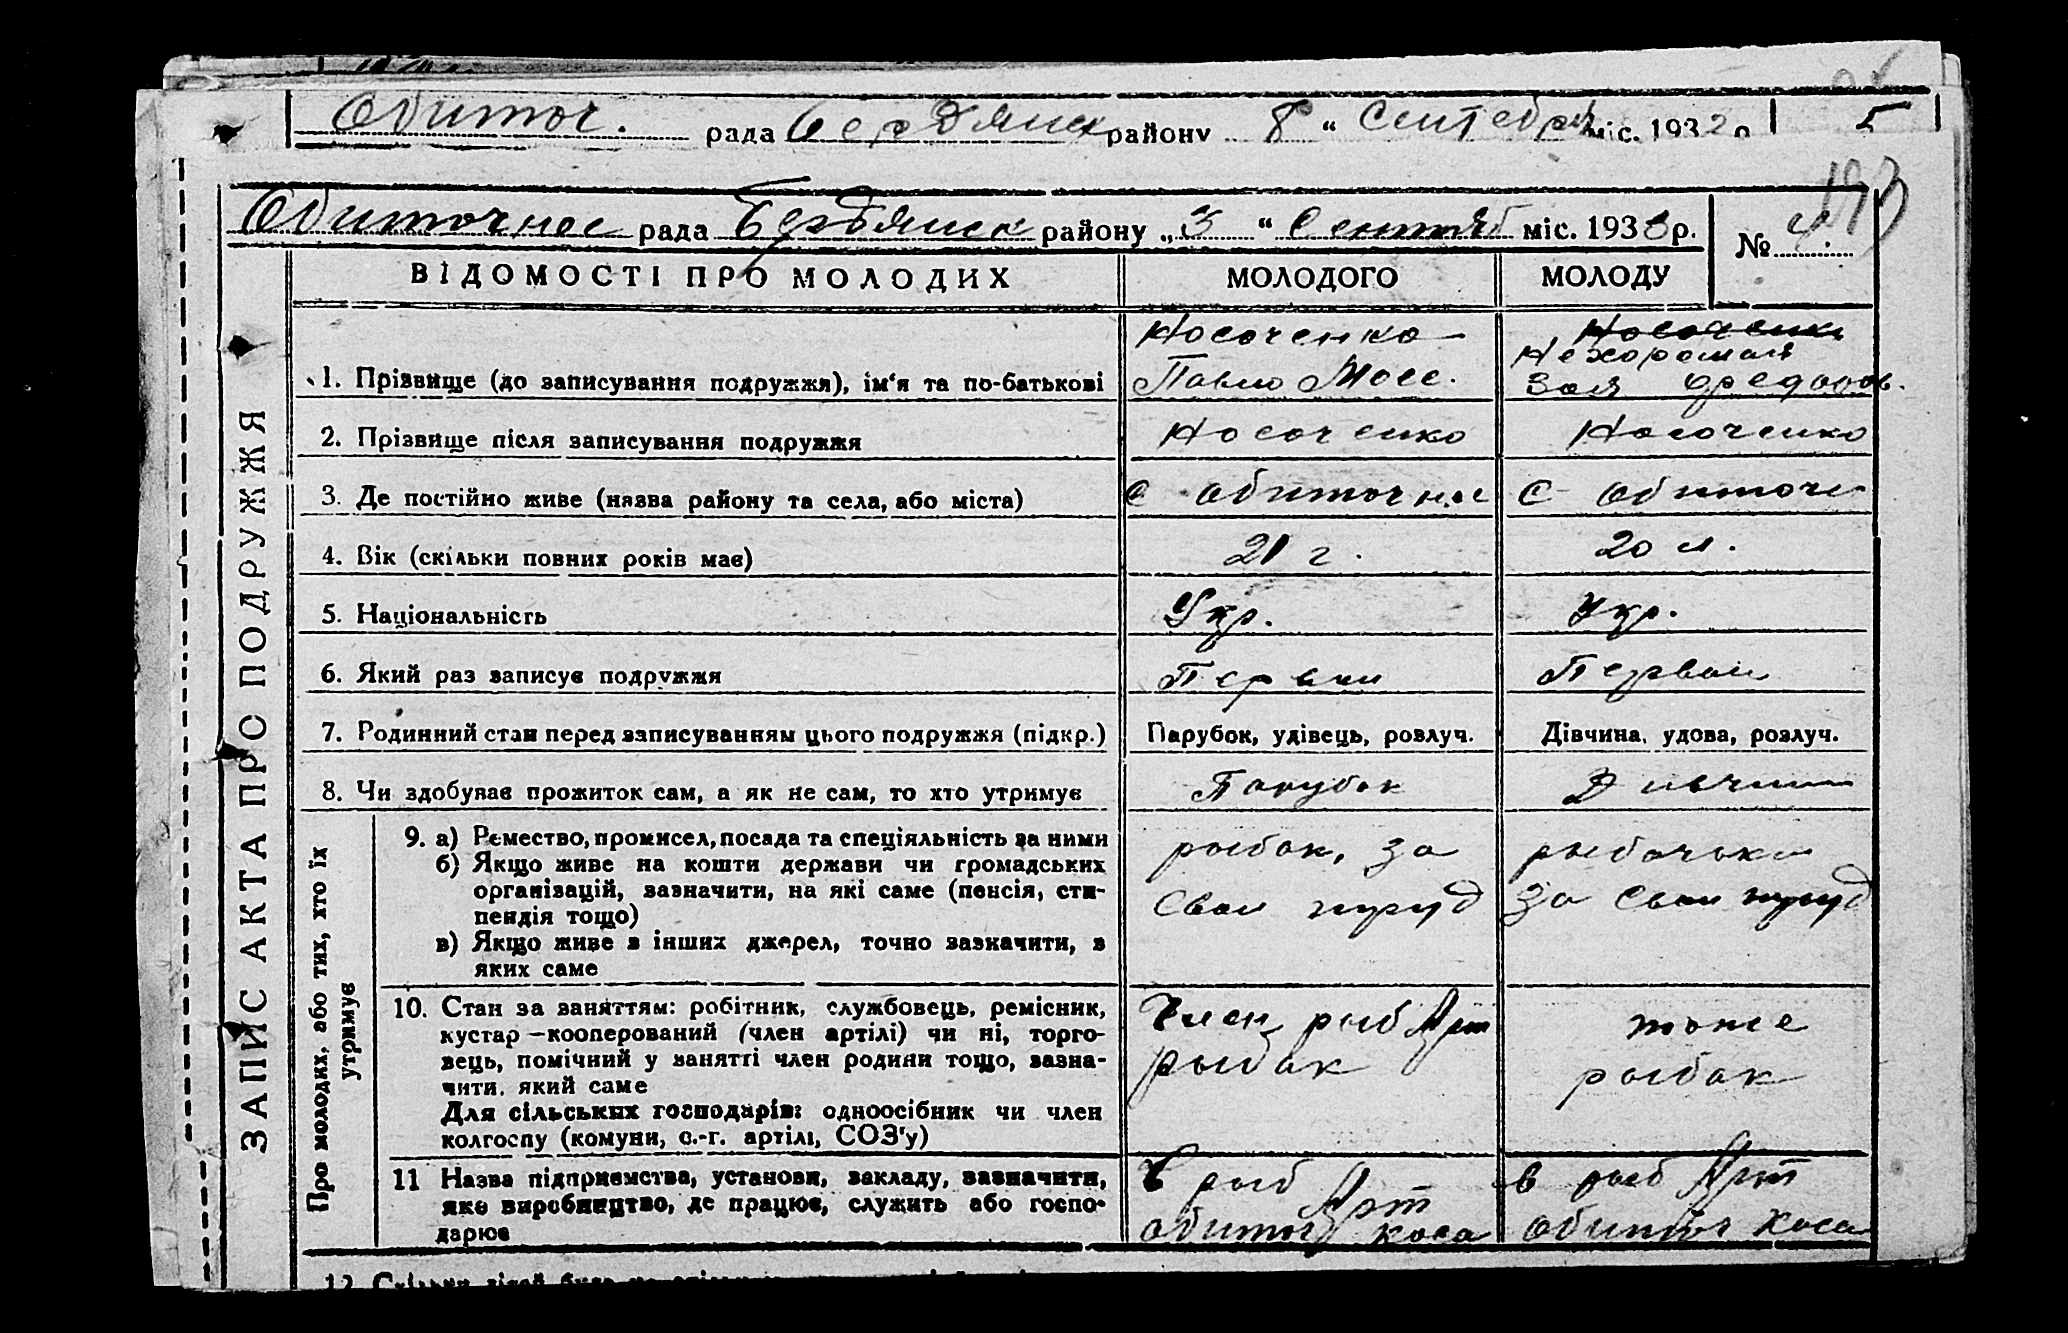 Обиточ. рада Бердянск району 8 " Сентебря міс. 1932 р 5
193
Обиточное рада Бердянск району „3 " Сентяб міс. 1933 р. № 4.
ВІДОМОСТІ ПРО МОЛОДИХ МОЛОДОГО МОЛОДУ
ЗАПИС АКТА ПРО ПОДРУЖЖЯ
Носоченко Носоченко
Нехорошая
1. Прізвище (до записування подружжя), ім'я та по-батькові Павло Моес. Зоя Федоров.
2. Прізвище після записування подружжя Носоченко Носоченко
3. Де постійно живе (назва району та села, або міста) с Обиточное с Обиточн
4. Вік (скільки повних років має) 21 г. 20 л.
5. Національність Укр. Укр.
6. Який раз записує подружжя Первый Первый
7. Родинний стан перед записуванням цього подружжя (підкр.) Парубок, удівець, розлуч. Дівчина, удова, розлуч.
8. Чи здобував прожиток сам, а як не сам, то хто утримує Парубок Дивчина
Про молодих, або тих, хто їх
утримує
9. а) Ремество, промисел, посада та спеціяльність за ними рыбак, за рыбачка
б) Якщо живе на кошти держави чи громадських
організацій, зазначити, на які саме (пенсія, сти- свой труд за свой труд
пендія тощо)
в) Якщо живе з інших джерел, точно зазначити, з
яких саме
10. Стан за заняттям: робітник, службовець, ремісник, Член рыб Арт тоже
кустар — кооперований (член артілі) чи ні, торго-
вець, помічний у занятті член родини тощо, зазна- рыбак рыбак
чити, який саме
Для сільських господарів: одноосібник чи член
колгоспу (комуни, с.-г. артілі, СОЗ'у)
11 Назва підприємства, установи, закладу, зазначити, В рыб Арт в рыб Арт
яке виробництво, де працює, служить або госпо-
дарює Обиточ коса Обиточ коса
12